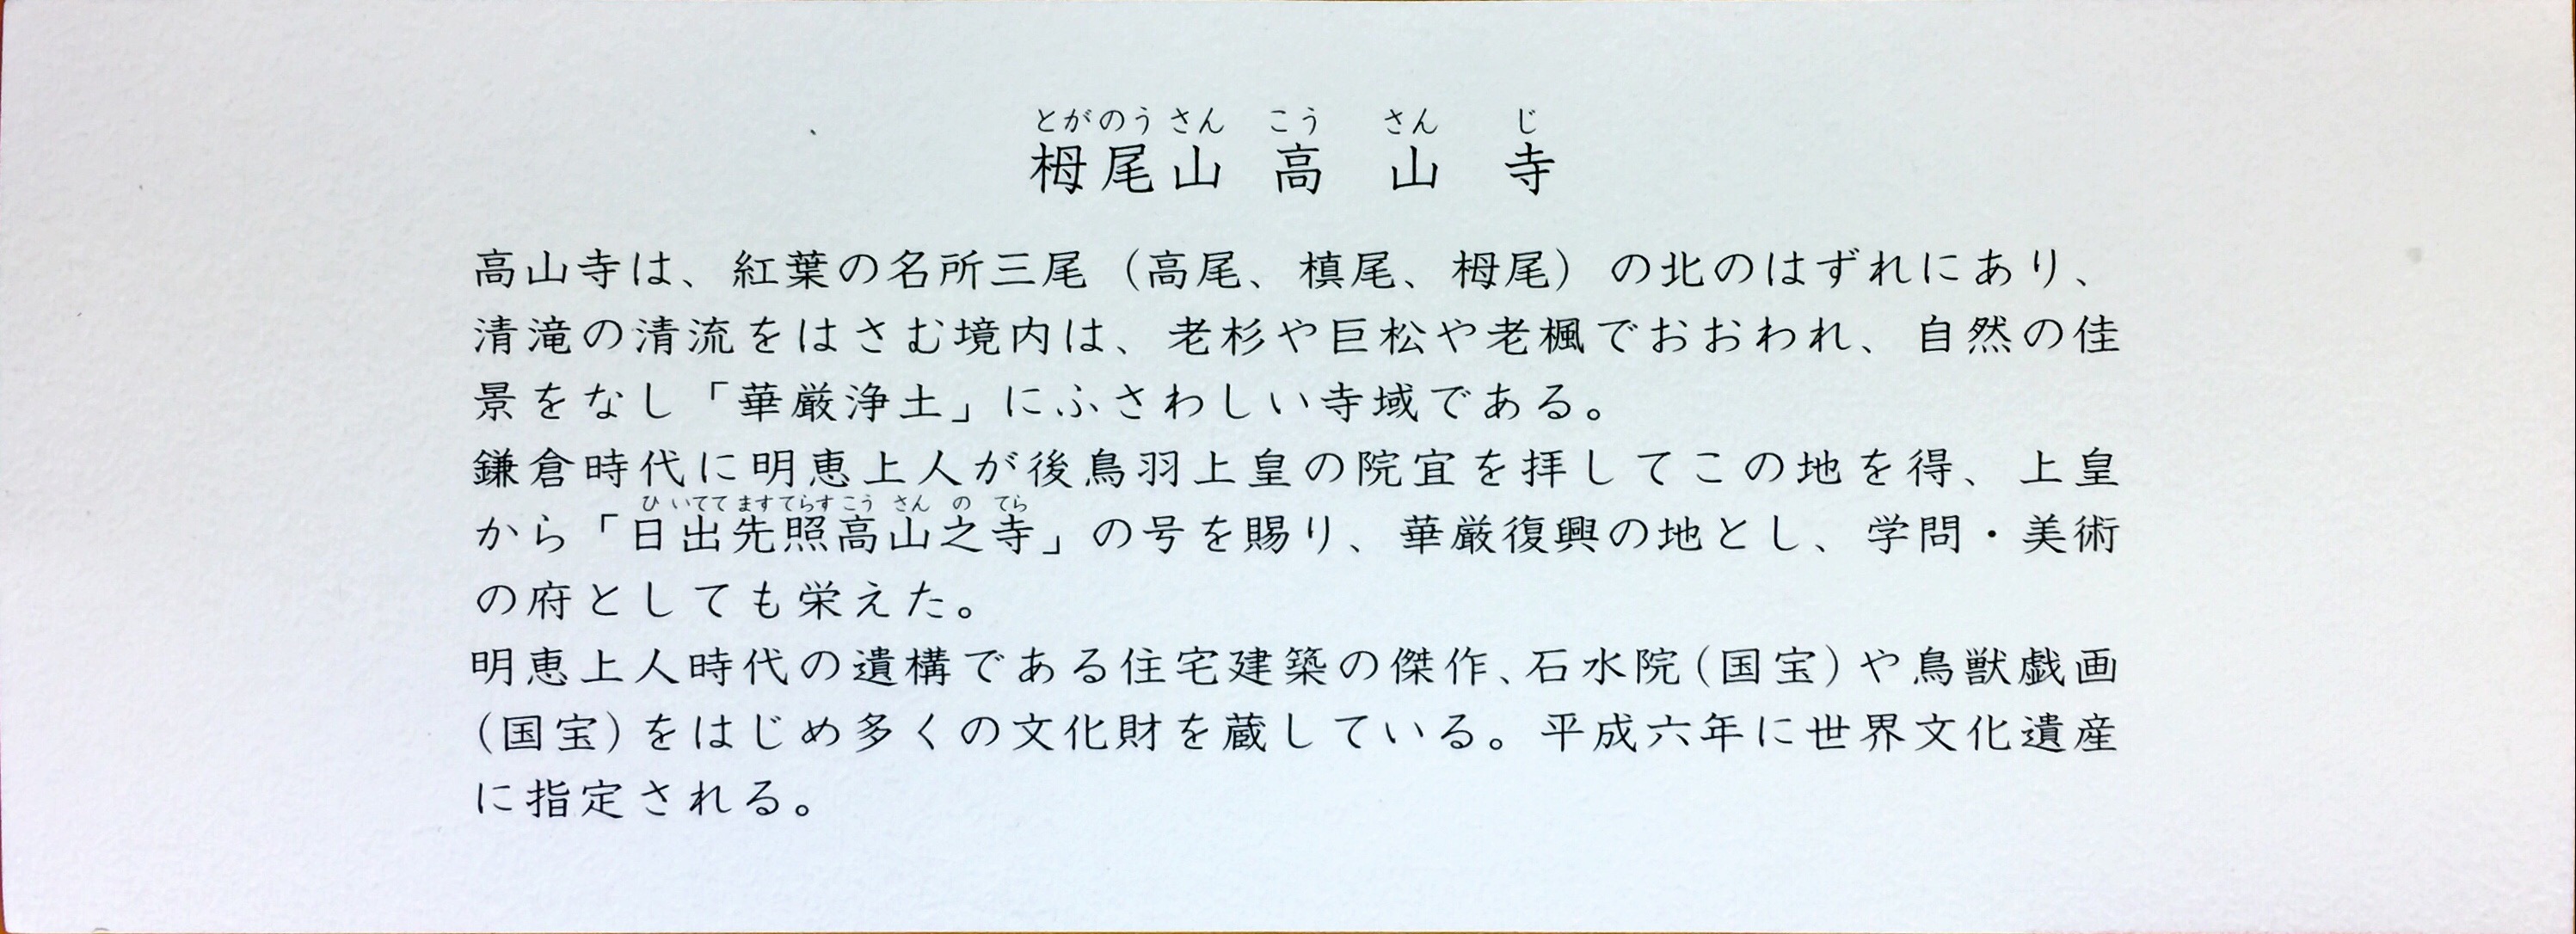 とがのうさん こう さん じ
栂尾山 高 山 寺
高山寺は、紅葉の名所三尾（高尾、槙尾、栂尾）の北のはずれにあり、
清滝の清流をはさむ境内は、老杉や巨松や老楓でおおわれ、自然の佳
景をなし「華厳浄土」にふさわしい寺域である。
鎌倉時代に明恵上人が後鳥羽上皇の院宜を拝してこの地を得、上皇
ひ いでて まず てらす こう さん の てら
から「日出先照高山之寺」の号を賜り、華厳復興の地とし、学問・美術
の府としても栄えた。
明恵上人時代の遺構である住宅建築の傑作、石水院（国宝）や鳥獣戯画
（国宝）をはじめ多くの文化財を蔵している。平成六年に世界文化遺産
に指定される。